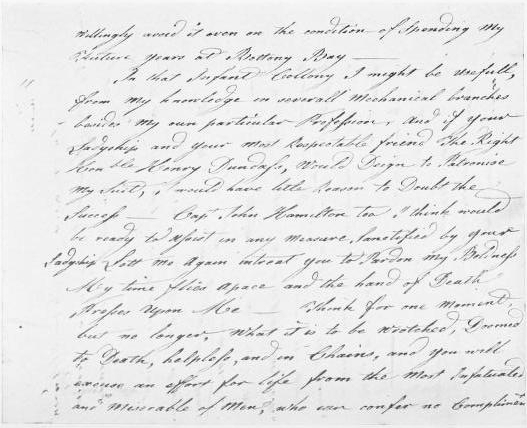 Willingly avoid it even on the condition of Spending my
Future years at Bottony Bay —
In that Infant Collony I might be usefull,
from my knowledge in severall Mechanical branches
besides my own particular Profession, and if your
Ladyship and your most Respectable friend The Right
Honble Henry Dundass, Would Deign to Patronise
my Suit, I would have little Reason to Doubt the
Success — Capt John Hamilton too I think would
be ready to assist in any measure Sanctified by your
Ladyship Lett me again intreat you to Pardon my Boldness
My time flies apace and the hand of Death
Presses Upon Me — Think for one Moment
but no longer, What it is to be wretched, Doomed
to Death, helpless, and in Chains, and you will
excuse an effort for life from the Most Infatuated
and Miserable of Men, who can confer no Compliment